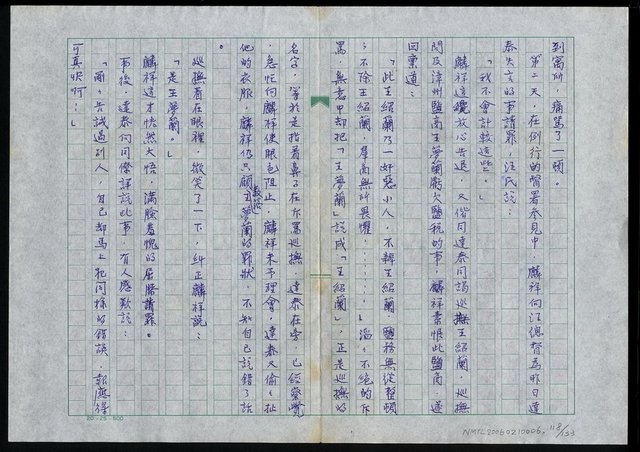 到寓所，痛罵了一頓。
第二天，在例行的督署參見中，麟祥向汪總督為昨日達
泰失言的事請罪，汪氏說：
「我不會計較這些。」
麟祥這纔放心告退，又偕同達泰同謁巡撫王紹蘭，巡撫
問及漳州鹽商王夢蘭虧欠鹽稅的事，麟祥素恨此鹽商，遂
回稟道：
「此王紹蘭乃一奸惡小人，不辦王紹蘭，鹽務無從整頓
；不除王紹蘭，羣商無所畏懼………」滔滔不絕的斥
罵，無意中却把「王夢蘭」說成「王紹蘭」，正是巡撫的
名字，等於是指着鼻子在斥罵巡撫，達泰在旁，已經警覺
，急忙向麟祥使眼色阻止，麟祥未予理會，達泰又偷偷扯
他的衣服，麟祥仍只顧數說王夢蘭的罪狀，不知自己說錯了話
巡撫看在眼裡，微笑了一下，糾正麟祥說：
「是王夢蘭。」
麟祥這才恍然大悟，滿臉羞愧的屈膝請罪。
事後，達泰向同僚詳說此事，有人感歎說：
「爾爾告誡過別人，自己却馬上犯同樣的錯誤，報應得
可真快啊！」
20×25=500
NMTL20060210006.
118/133